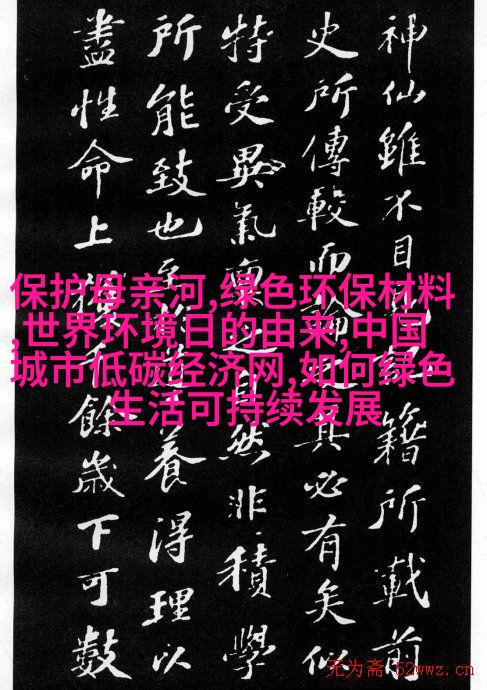 神仙雖不目見籍所載前
史所傳較而論之其必有矣似
特受異氣稟之自然非積學
所能致也至養得理以
盡性命上獲千餘歲下可數
保护母亲河,绿色环保材料
,世界环境日的由来,中国
城市低碳经济网,如何绿色
生活可持续发展
无为斋·52wwz.cn